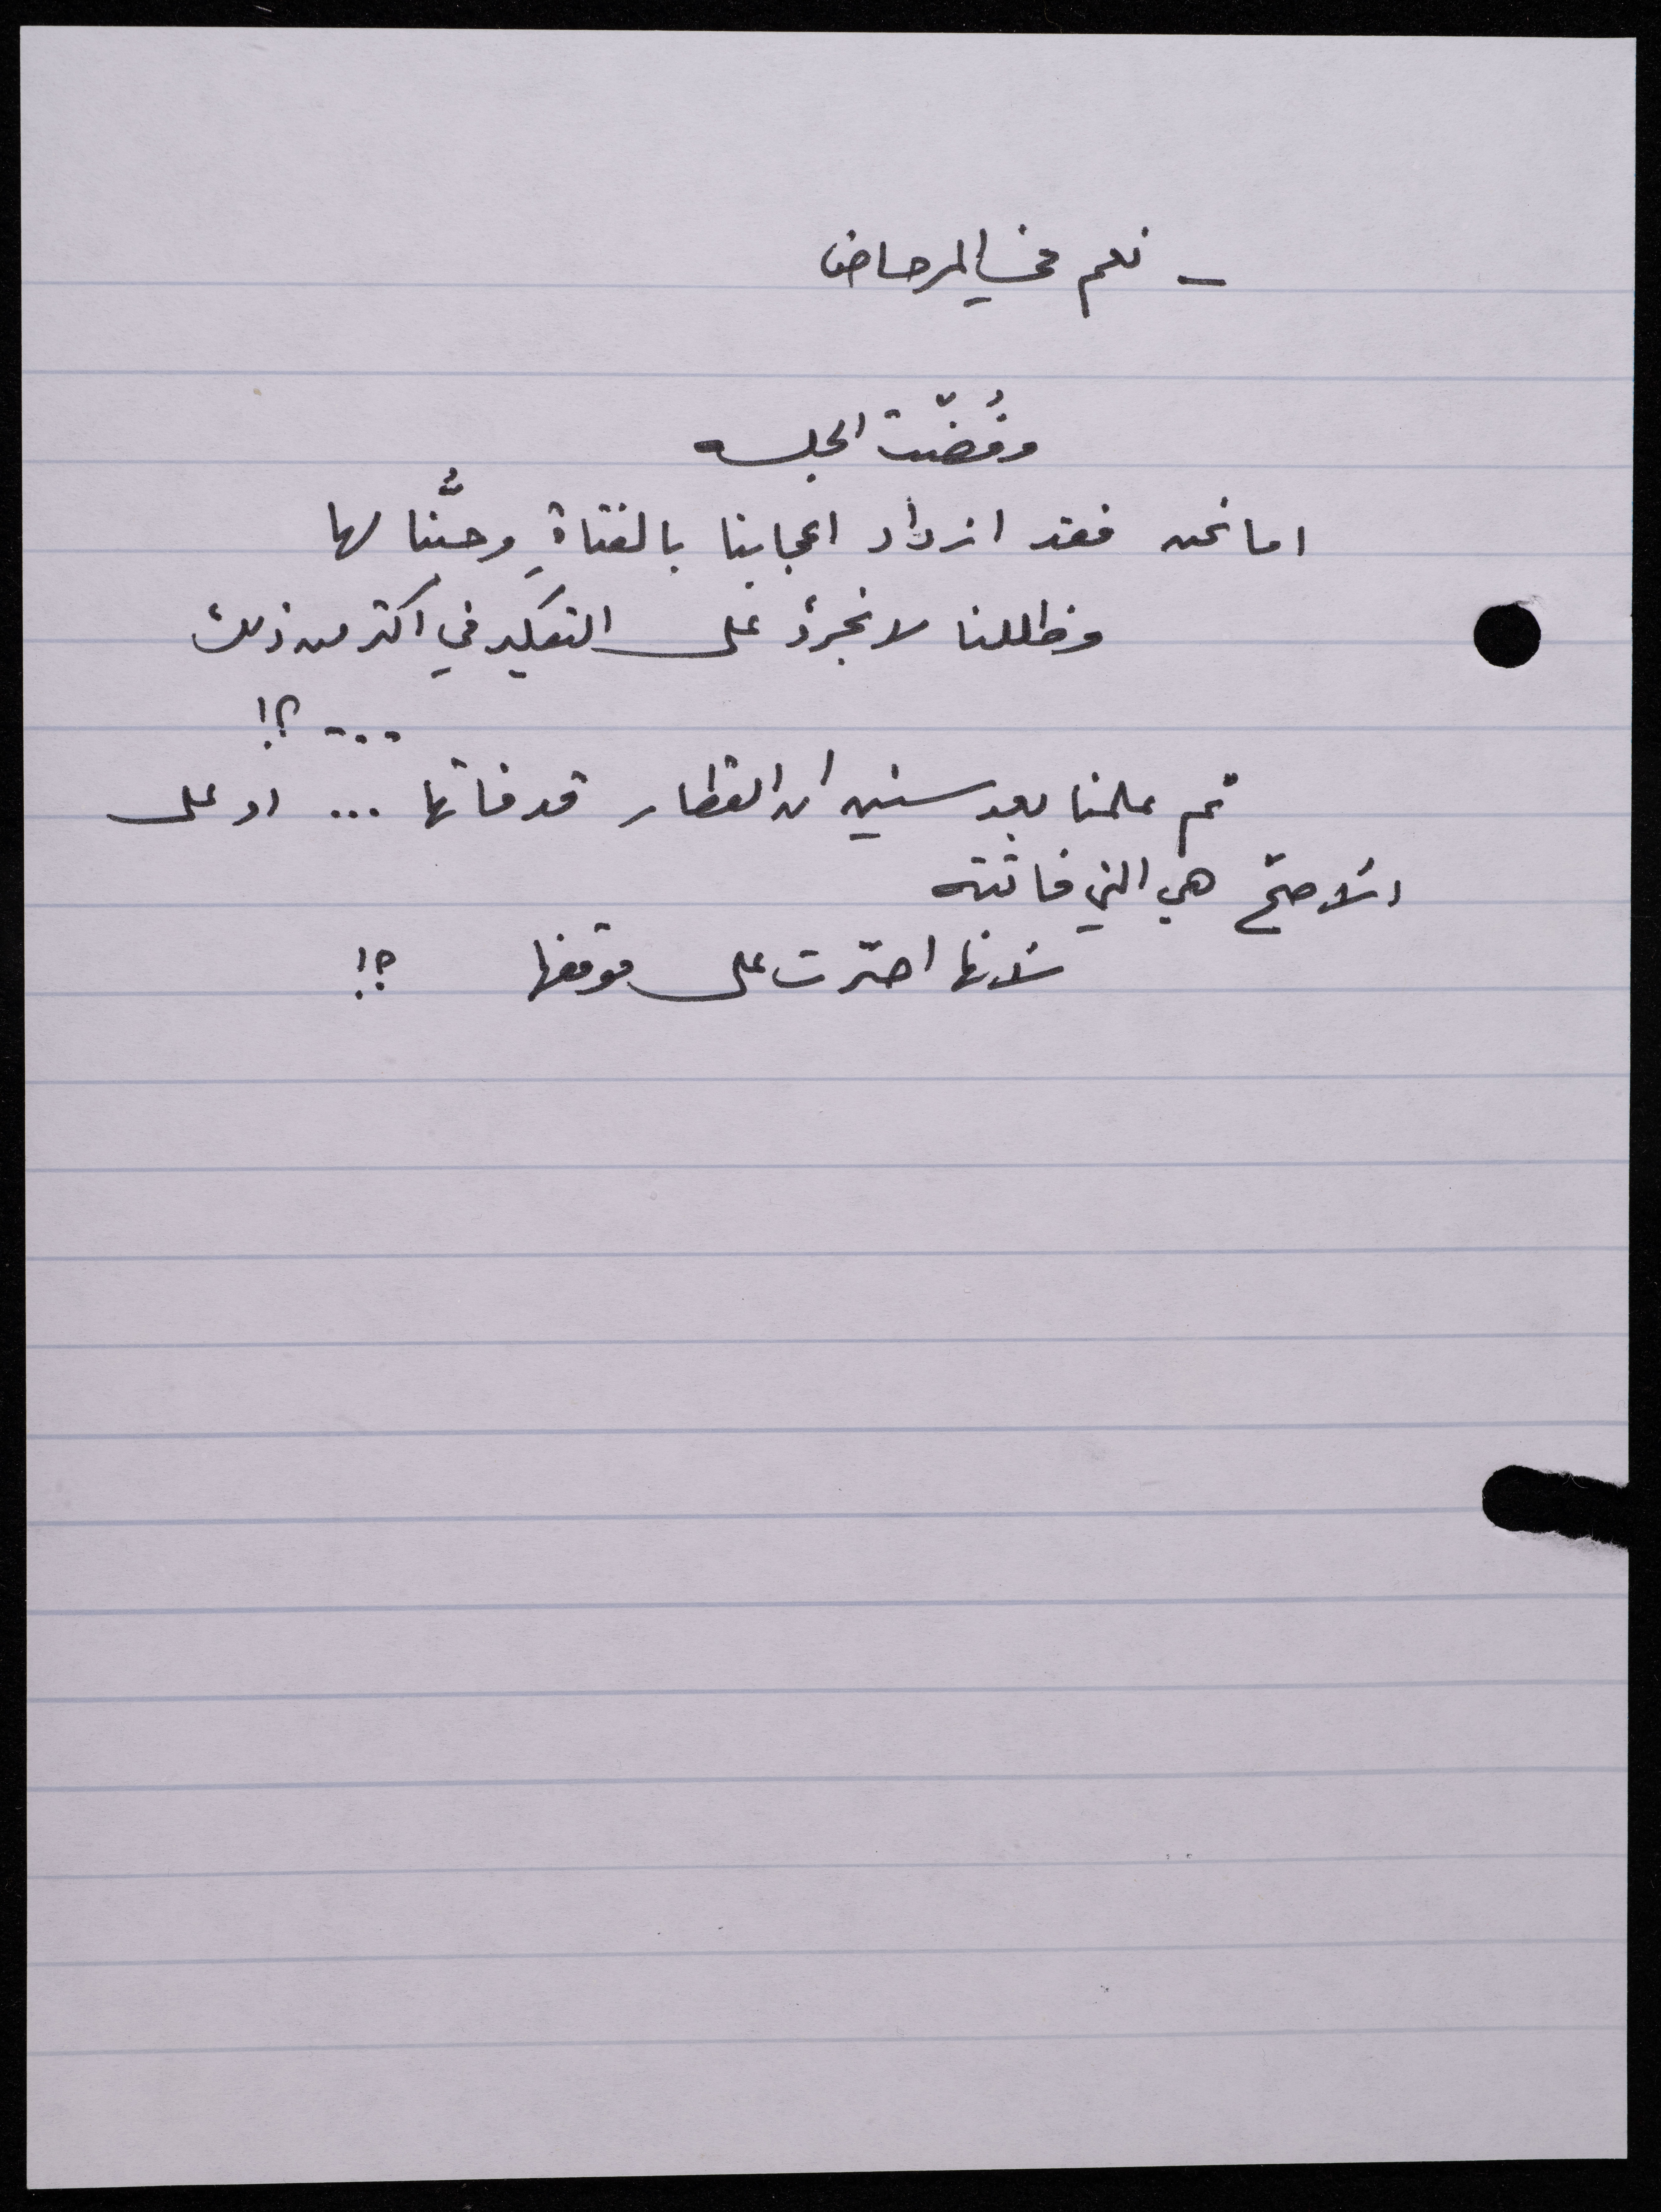 - نعم في المرحاض
وفُضّت الجلسه
اما نحن فقد ازداد اعجابنا بالفتاةِ وحبُّنا لها
وظللنا لا نجرؤ على التفكير في اكثر من ذلك
... ؟!
ثم علمنا بعد سنين ان القطار قد فاتها ... او على
الاصحّ هي التي فاتته
لانها اصرّت على موقفها ؟!